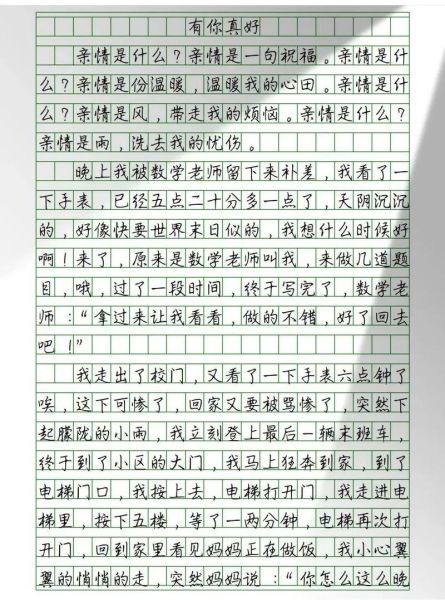 有你真好
亲情是什么？亲情是一句祝福。亲情是什
么？亲情是份温暖，温暖我的心田。亲情是什
么？亲情是风，带走我的烦恼。亲情是什么？
亲情是雨，洗去我的忧伤。
晚上我被数学老师留下来补差，我看了一
下手表，已经五点二十分多一点了，天阴沉沉
的，好像快要世界末日似的，我想什么时候好
啊！来了，原来是数学老师叫我，来做几道题
目，哦，过了一段时间，终于写完了，数学老
师：“拿过来让我看看，做的不错，好了回去
吧！”
我走出了校门，又看了一下手表六点钟了
唉，这下可惨了，回家又要被骂惨了，突然下
起朦胧的小雨，我立刻登上最后一辆末班车，
终于到了小区的大门，我马上狂奔到家，到了
电梯门口，我按上去，电梯打开门，我走进电
梯里，按下五楼，等了一两分钟，电梯再次打
开门，回到家里看见妈妈正在做饭，我小心翼
翼的悄悄的走，突然妈妈说：“你怎么这么晚